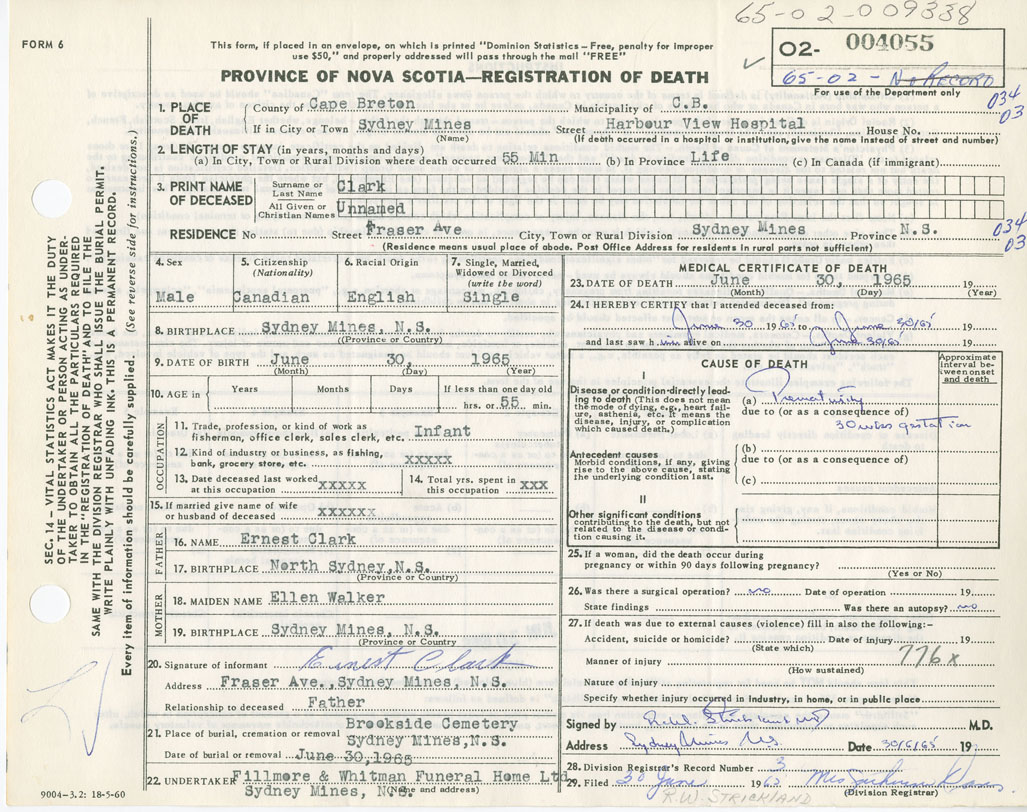 65-02-009338
FORM 6
This form, if placed in an envelope, on which is printed "Dominion Statistics—Free, penalty for improper
use $50," and properly addressed will pass through the mail "FREE"
02- 004055
65-02 - No RECORD
For use of the Department only
PROVINCE OF NOVA SCOTIA—REGISTRATION OF DEATH
034
03
1. PLACE OF DEATH
County of Cape Breton Municipality of C.B.
If in City or Town Sydney Mines Street Harbour View Hospital House No.
(Name) (If death occurred in a hospital or institution, give the name instead of street and number)
2. LENGTH OF STAY (in years, months and days)
(a) In City, Town or Rural Division where death occurred 55 Min (b) In Province Life (c) In Canada (if immigrant)
3. PRINT NAME OF DECEASED
Surname or Last Name Clark
All Given or Christian Names Unnamed
RESIDENCE No Street Fraser Ave City, Town or Rural Division Sydney Mines Province N.S.
034
03
(Residence means usual place of abode. Post Office Address for residents in rural parts not sufficient)
4. Sex
Male
5. Citizenship
(Nationality)
Canadian
6. Racial Origin
English
7. Single, Married,
Widowed or Divorced
(write the word)
Single
8. BIRTHPLACE Sydney Mines, N.S.
(Province or Country)
9. DATE OF BIRTH June 30, 1965
(Month) (Day) (Year)
10. AGE in Years Months Days If less than one day old
hrs. or 55 min.
OCCUPATION
11. Trade, profession, or kind of work as
fisherman, office clerk, sales clerk, etc. Infant
12. Kind of industry or business, as fishing,
bank, grocery store, etc. xxxxx
13. Date deceased last worked
at this occupation xxxxx
14. Total yrs. spent in
this occupation xxx
15. If married give name of wife
or husband of deceased xxxxxx
FATHER
16. NAME Ernest Clark
17. BIRTHPLACE North Sydney,N.S.
(Province or Country)
MOTHER
18. MAIDEN NAME Ellen Walker
19. BIRTHPLACE Sydney Mines, N.S.
(Province or Country)
20. Signature of informant Ernest Clark
Address Fraser Ave.,Sydney Mines, N.S.
Relationship to deceased Father
21. Place of burial, cremation or removal Brookside Cemetery
Sydney Mines,N.S.
Date of burial or removal June 30,1965
22. UNDERTAKER Fillmore & Whitman Funeral Home Ltd
Sydney Mines, N.S.
(Name and address)
MEDICAL CERTIFICATE OF DEATH
23. DATE OF DEATH June 30, 1965 19
(Month) (Day) (Year)
24. I HEREBY CERTIFY that I attended deceased from:
June 30 1965 to June 30/65 19
and last saw him alive on June 30/65 19
CAUSE OF DEATH
Approximate
interval be-
tween onset
and death
I
Disease or condition directly lead-
ing to death (This does not mean
the mode of dying, e.g., heart fail-
ure, asthenia, etc. It means the
disease, injury, or complication
which caused death.)
(a) Prematurity
due to (or as a consequence of)
30 wks gestation
Antecedent causes
Morbid conditions, if any, giving
rise to the above cause, stating
the underlying condition last.
(b)
due to (or as a consequence of)
(c)
II
Other significant conditions
contributing to the death, but not
related to the disease or condi-
tion causing it.
25. If a woman, did the death occur during
pregnancy or within 90 days following pregnancy?
(Yes or No)
26. Was there a surgical operation? no Date of operation 19
State findings Was there an autopsy? no
27. If death was due to external causes (violence) fill in also the following:-
Accident, suicide or homicide? Date of injury 19
(State which)
776x
Manner of injury
(How sustained)
Nature of injury
Specify whether injury occurred in Industry, in home, or in public place
Signed by Strickland MD M.D.
Address Sydney Mines N.S. Date 30/6/65 19
28. Division Registrar's Record Number 3
29. Filed 30 June 1965 Mrs
(Division Registrar)
R.W. STRICKLAND
9004-3.2: 18-5-60
SEC. 14 — VITAL STATISTICS ACT MAKES IT THE DUTY
OF THE UNDERTAKER OR PERSON ACTING AS UNDER-
TAKER TO OBTAIN ALL THE PARTICULARS REQUIRED
IN THE "REGISTRATION OF DEATH" AND TO FILE THE
SAME WITH THE DIVISION REGISTRAR WHO SHALL ISSUE THE BURIAL PERMIT.
WRITE PLAINLY WITH UNFADING INK—THIS IS A PERMANENT RECORD.
Every item of information should be carefully supplied. (See reverse side for instructions.)